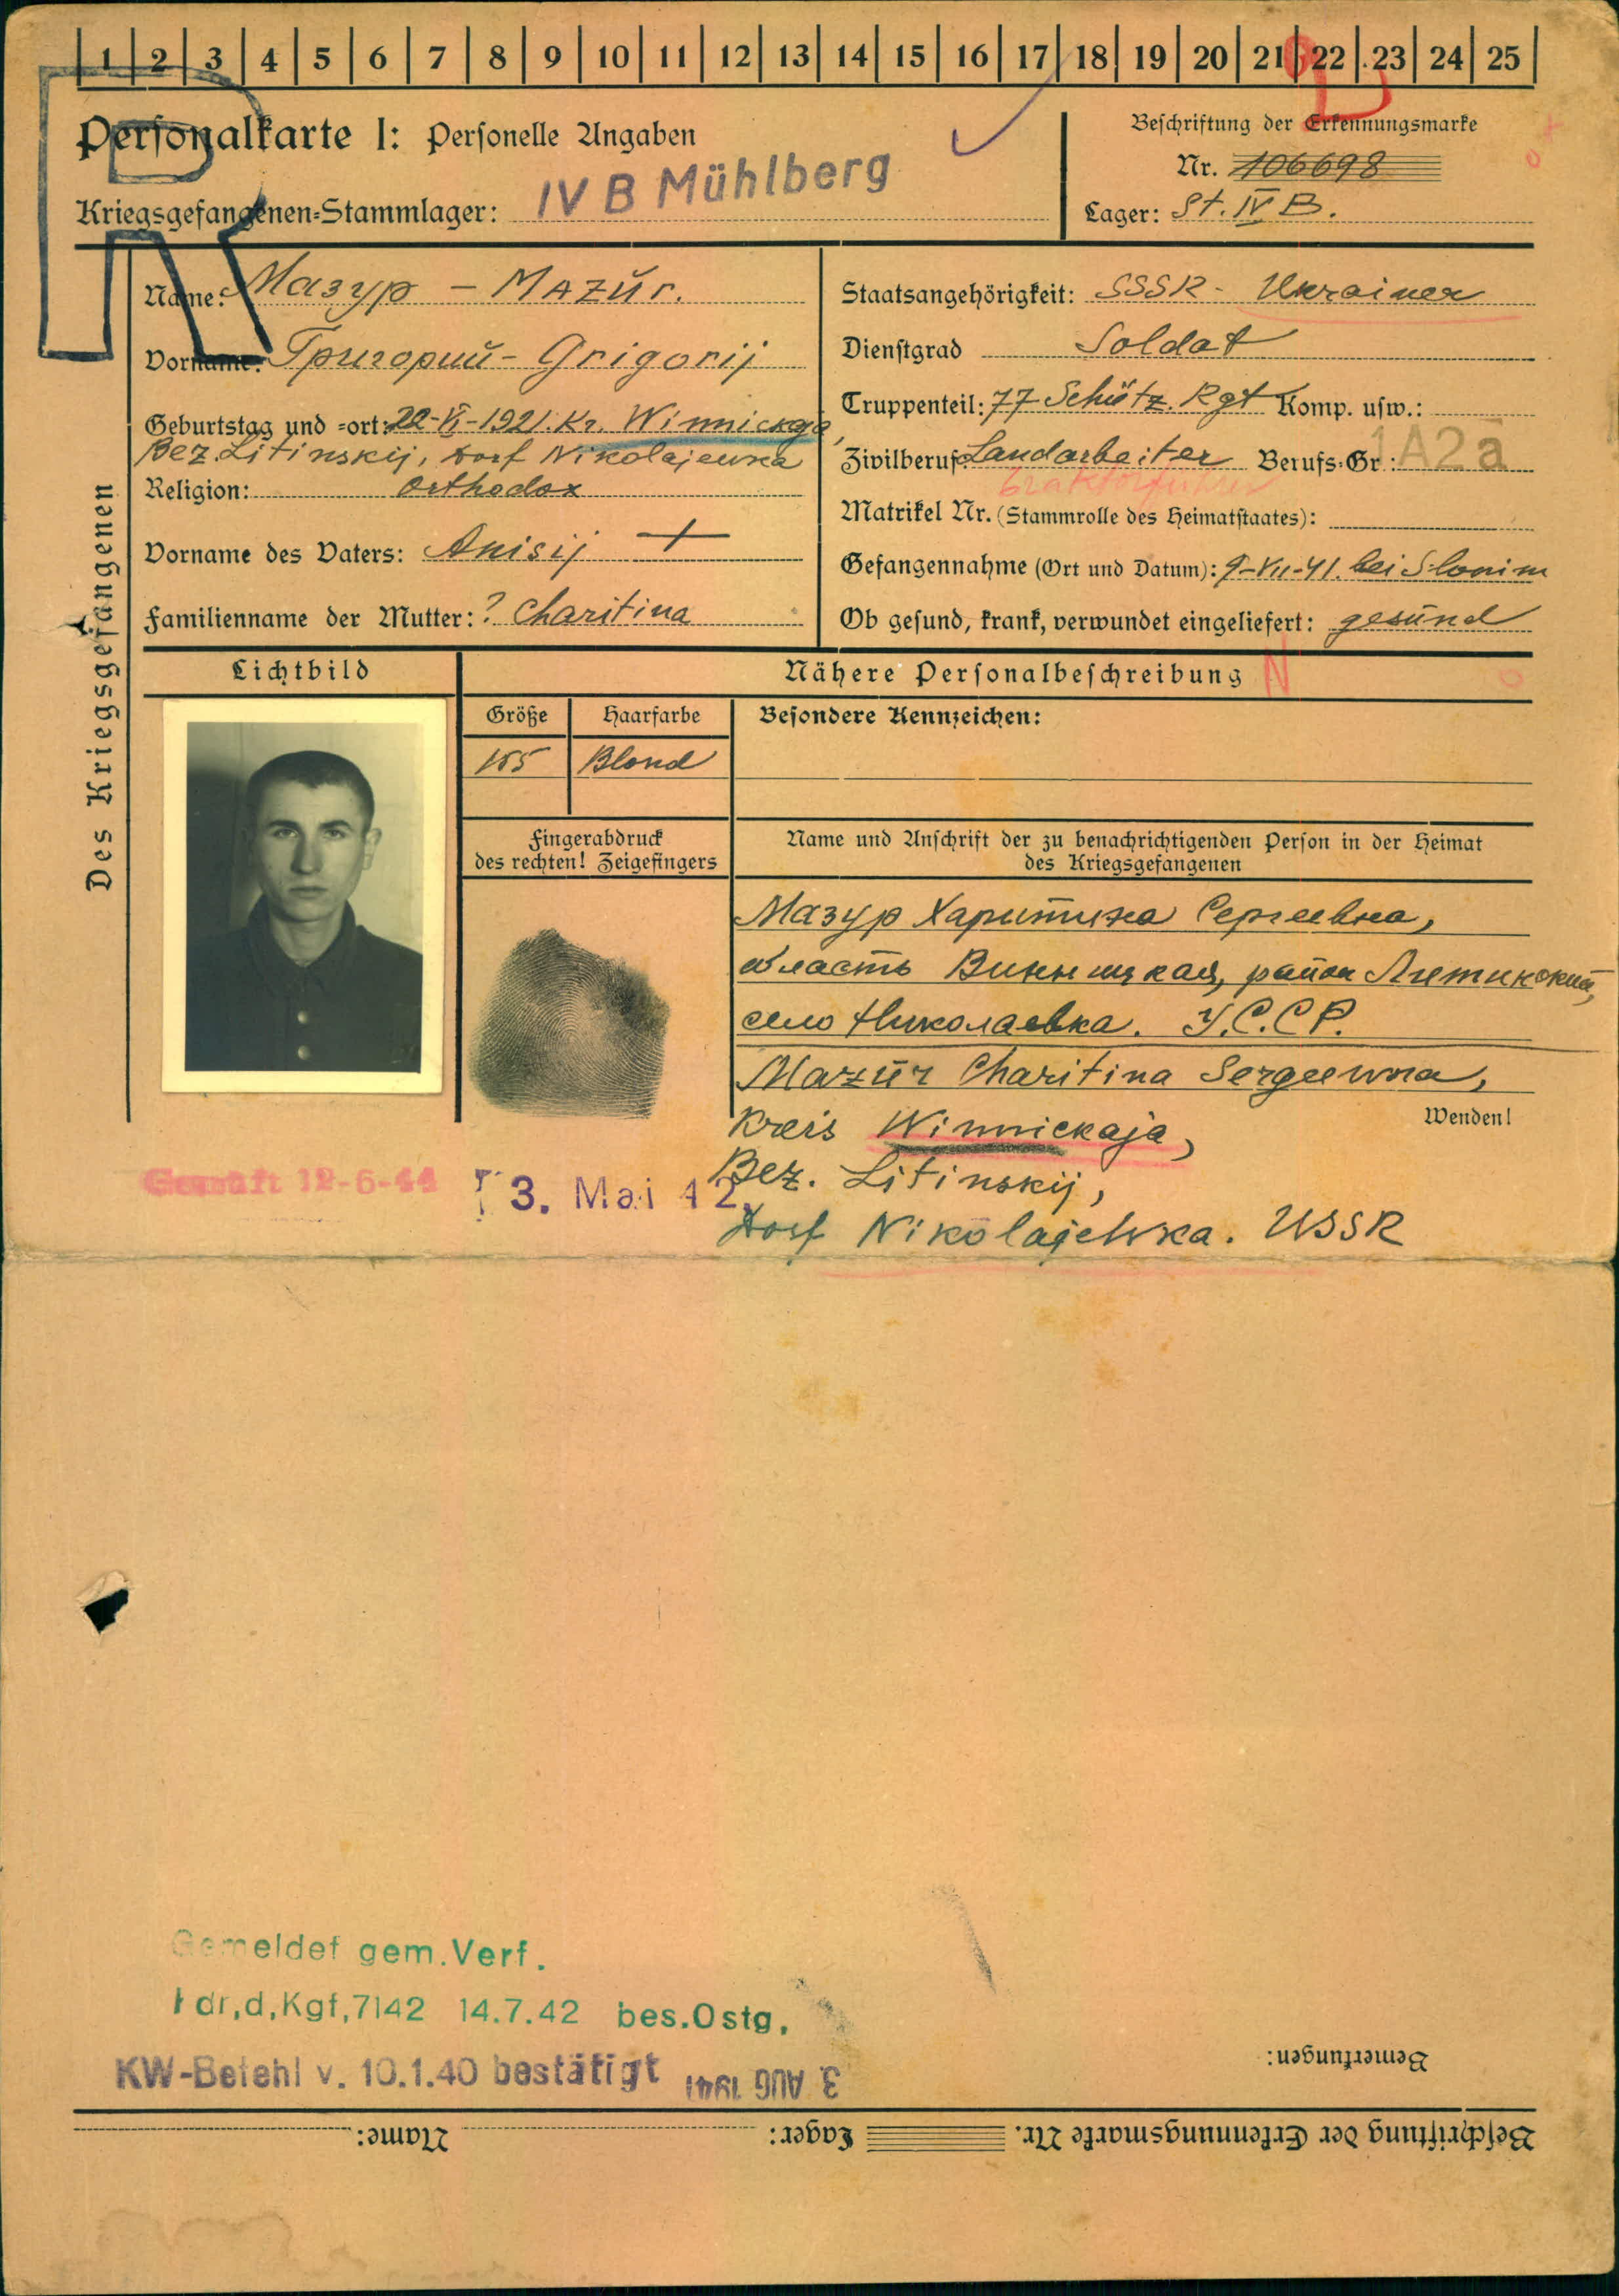 1 2 3 4 5 6 7 8 9 10 11 12 13 14 15 16 17 18 19 20 21 22 23 24 25
Personalkarte I: Personelle Angaben
Kriegsgefangenen-Stammlager: IV B Mühlberg
Beschriftung der Erkennungsmarke
Nr. 106698
Lager: St. IV B.
Des Kriegsgefangenen
Name: Мазур – Mazŭr.
Vorname: Григорий - Grigorij
Geburtstag und -ort: 22-VI-1921. Kr. Winnickaja,
Bez. Litinskij, Dorf Nikolajewka
Religion: Orthodox
Vorname des Vaters: Anisij +
Familienname der Mutter: ? Charitina
Staatsangehörigkeit: SSSR - Ukrainer
Dienstgrad Soldat
Truppenteil: 77 Schütz. Rgt Komp. usw.:
Zivilberuf: Landarbeiter Berufs-Gr.: 1A2a
Matrikel Nr. (Stammrolle des Heimatstaates):
Gefangennahme (Ort und Datum): 9-VII-41. bei Slonim
Ob gesund, krank, verwundet eingeliefert: gesŭnd
Lichtbild
Nähere Personalbeschreibung N
Größe Haarfarbe Besondere Kennzeichen:
165 Blond
Fingerabdruck
des rechten! Zeigefingers
Name und Anschrift der zu benachrichtigenden Person in der Heimat
des Kriegsgefangenen
Мазур Харитина Сергеевна,
область Винницкая, район Литинский,
село Николаевка. У.С.С.Р.
Mazŭr Charitina Sergeewna,
Kreis Winnickaja,
Wenden!
Bez. Litinskij,
Dorf Nikolajewka. USSR
Geprüft 12-6-44
3. Mai 42
Gemeldet gem. Verf.
Kdr,d,Kgf,7142 14.7.42 bes.Ostg.
KW-Befehl v. 10.1.40 bestätigt
3. AUG 1941
Bemerkungen:
Beschriftung der Erkennungsmarke Nr. Lager: Name: